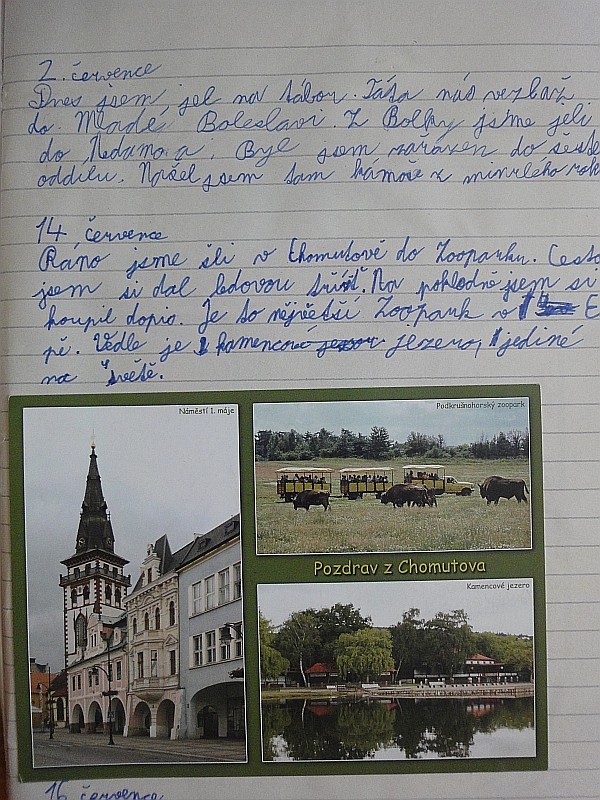 2. července
Dnes jsem jel na tábor. Táta nás vezl až
do Mladé Boleslavi. Z Bolky jsme jeli
do Nedamova. Byl jsem zařazen do šesté
oddílu. Našel jsem tam kámoše z minrlého rok
14 července
Ráno jsme šli v Chomutově do Zooparku. Cesto
jsem si dal ledovou tříšť. Na pokladně jsem si
koupil dopis. Je to nějvětší Zoopark v E
pě. Vedle je kamencové jezero, jediné
na světě.
Náměstí 1. máje
Podkrušnohorský zoopark
Pozdrav z Chomutova
Kamencové jezero
16 července